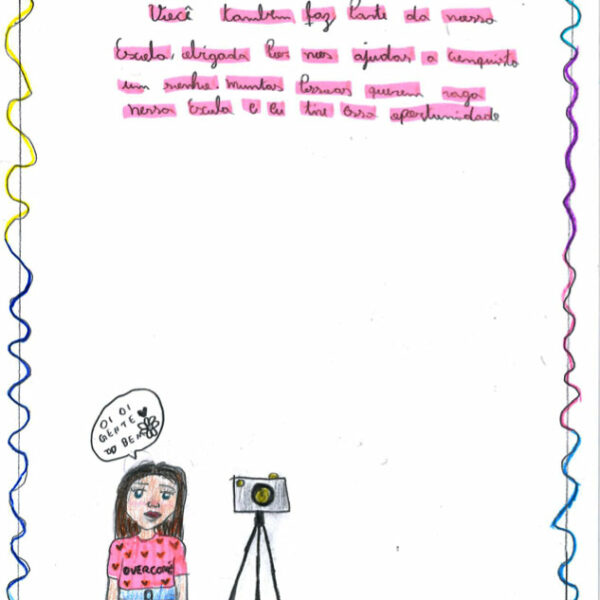 Você também faz Parte da nossa
Escola, obigada Por nos ajudar a comquisto
um sonho. muntas Pessoas querem vaga
nessa Escola e Eu tive Essa oportunidade
OI OI
GENTE
DO BEM
OVERCOME